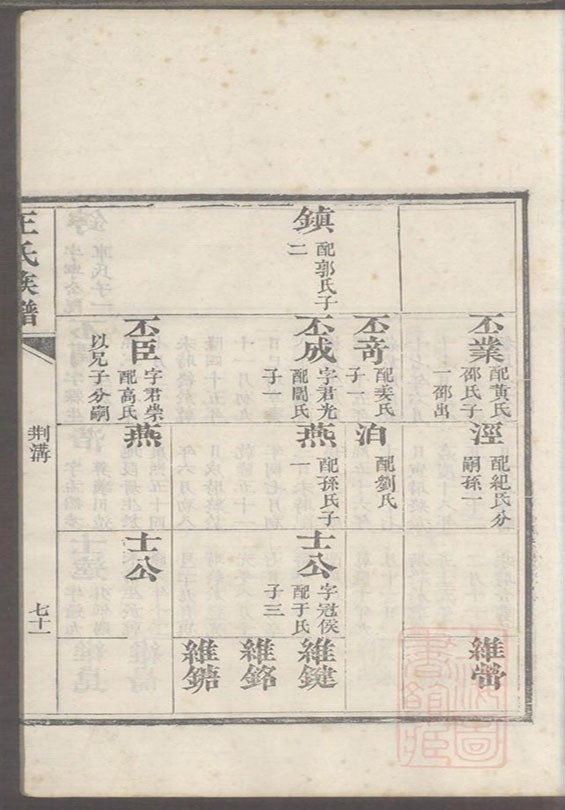 丕業
配黃氏
邵氏子
一邵出
涇
配紀氏分
嗣孫一
維嵤
丕奇
配姜氏
子一
泊
配劉氏
鎮
配郭氏子
二
丕成
字君光
配閻氏
子一
燕
配孫氏子
一
士公
字冠侯
配于氏
子三
維鍵
維銘
維鏕
丕臣
字君柴
配高氏
以兄子分嗣
燕
士公
王氏族譜
荆溝
七十一